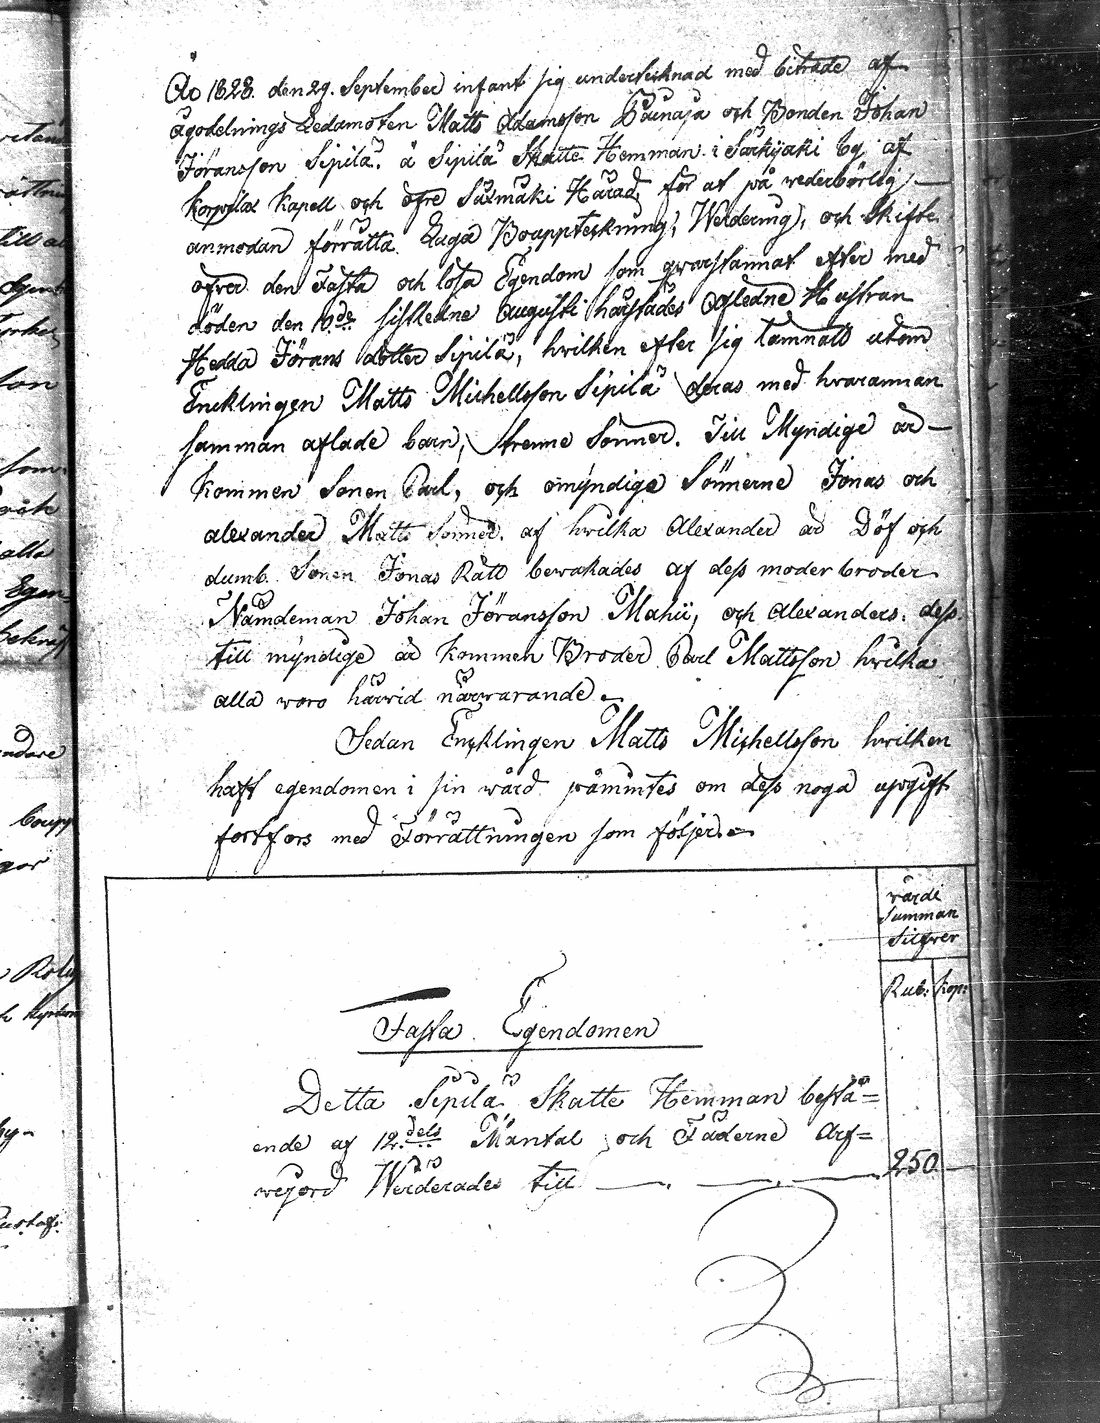 Åo 1828. den 29. September infant sig undertecknad med biträde af
ägodelnings Ledamoten Matts Adamsson Painaja och Bonden Johan
Jöransson Sipilä, å Sipilä Skatte Hemman i Särkijäki by af
Korpilax Kapell och öfre Saxmäki Härad, för at på wederbörlig
anmodan förrätta Laga Bouppteckning, Werdering, och Skifte
öfver den Fasta och lösa Egendom som qwarstannat efter med
döden den 10.de sistledne Augusti härstädes Afledne Hustran
Hedda Jörans dotter Sipilä, hvilken efter sig lämnadt utom
Encklingen Matts Michellsson Sipilä deras med hvarannan
samman aflade barn, trenne Sönner. Till Myndige år
kommen Sonen Carl, och omyndige Sönnerne Jonas och
Alexander Matts Sönner, af hvilka Alexander är Döf och
dumb. Sonen Jonas Rätt bewakades af dess moderbroder
Nämdeman Johan Jöransson Mahii, och Alexanders, dess
till myndige år kommen Broder Carl Mattsson hvilka
alla woro härvid närwarande.
Sedan Encklingen Matts Michellsson hvilken
haft egendomen i sin wård påmintes om dess noga upgift
fortfors med Förrättningen som följer.
wärdi
Summan
Silfwer
Rub: Kop:
Fasta Egendomen
Detta Sipilä Skatte Hemman bestå=
ende af 12.dels Mantal och Fäderne Arf=
wejord Werderades till 250